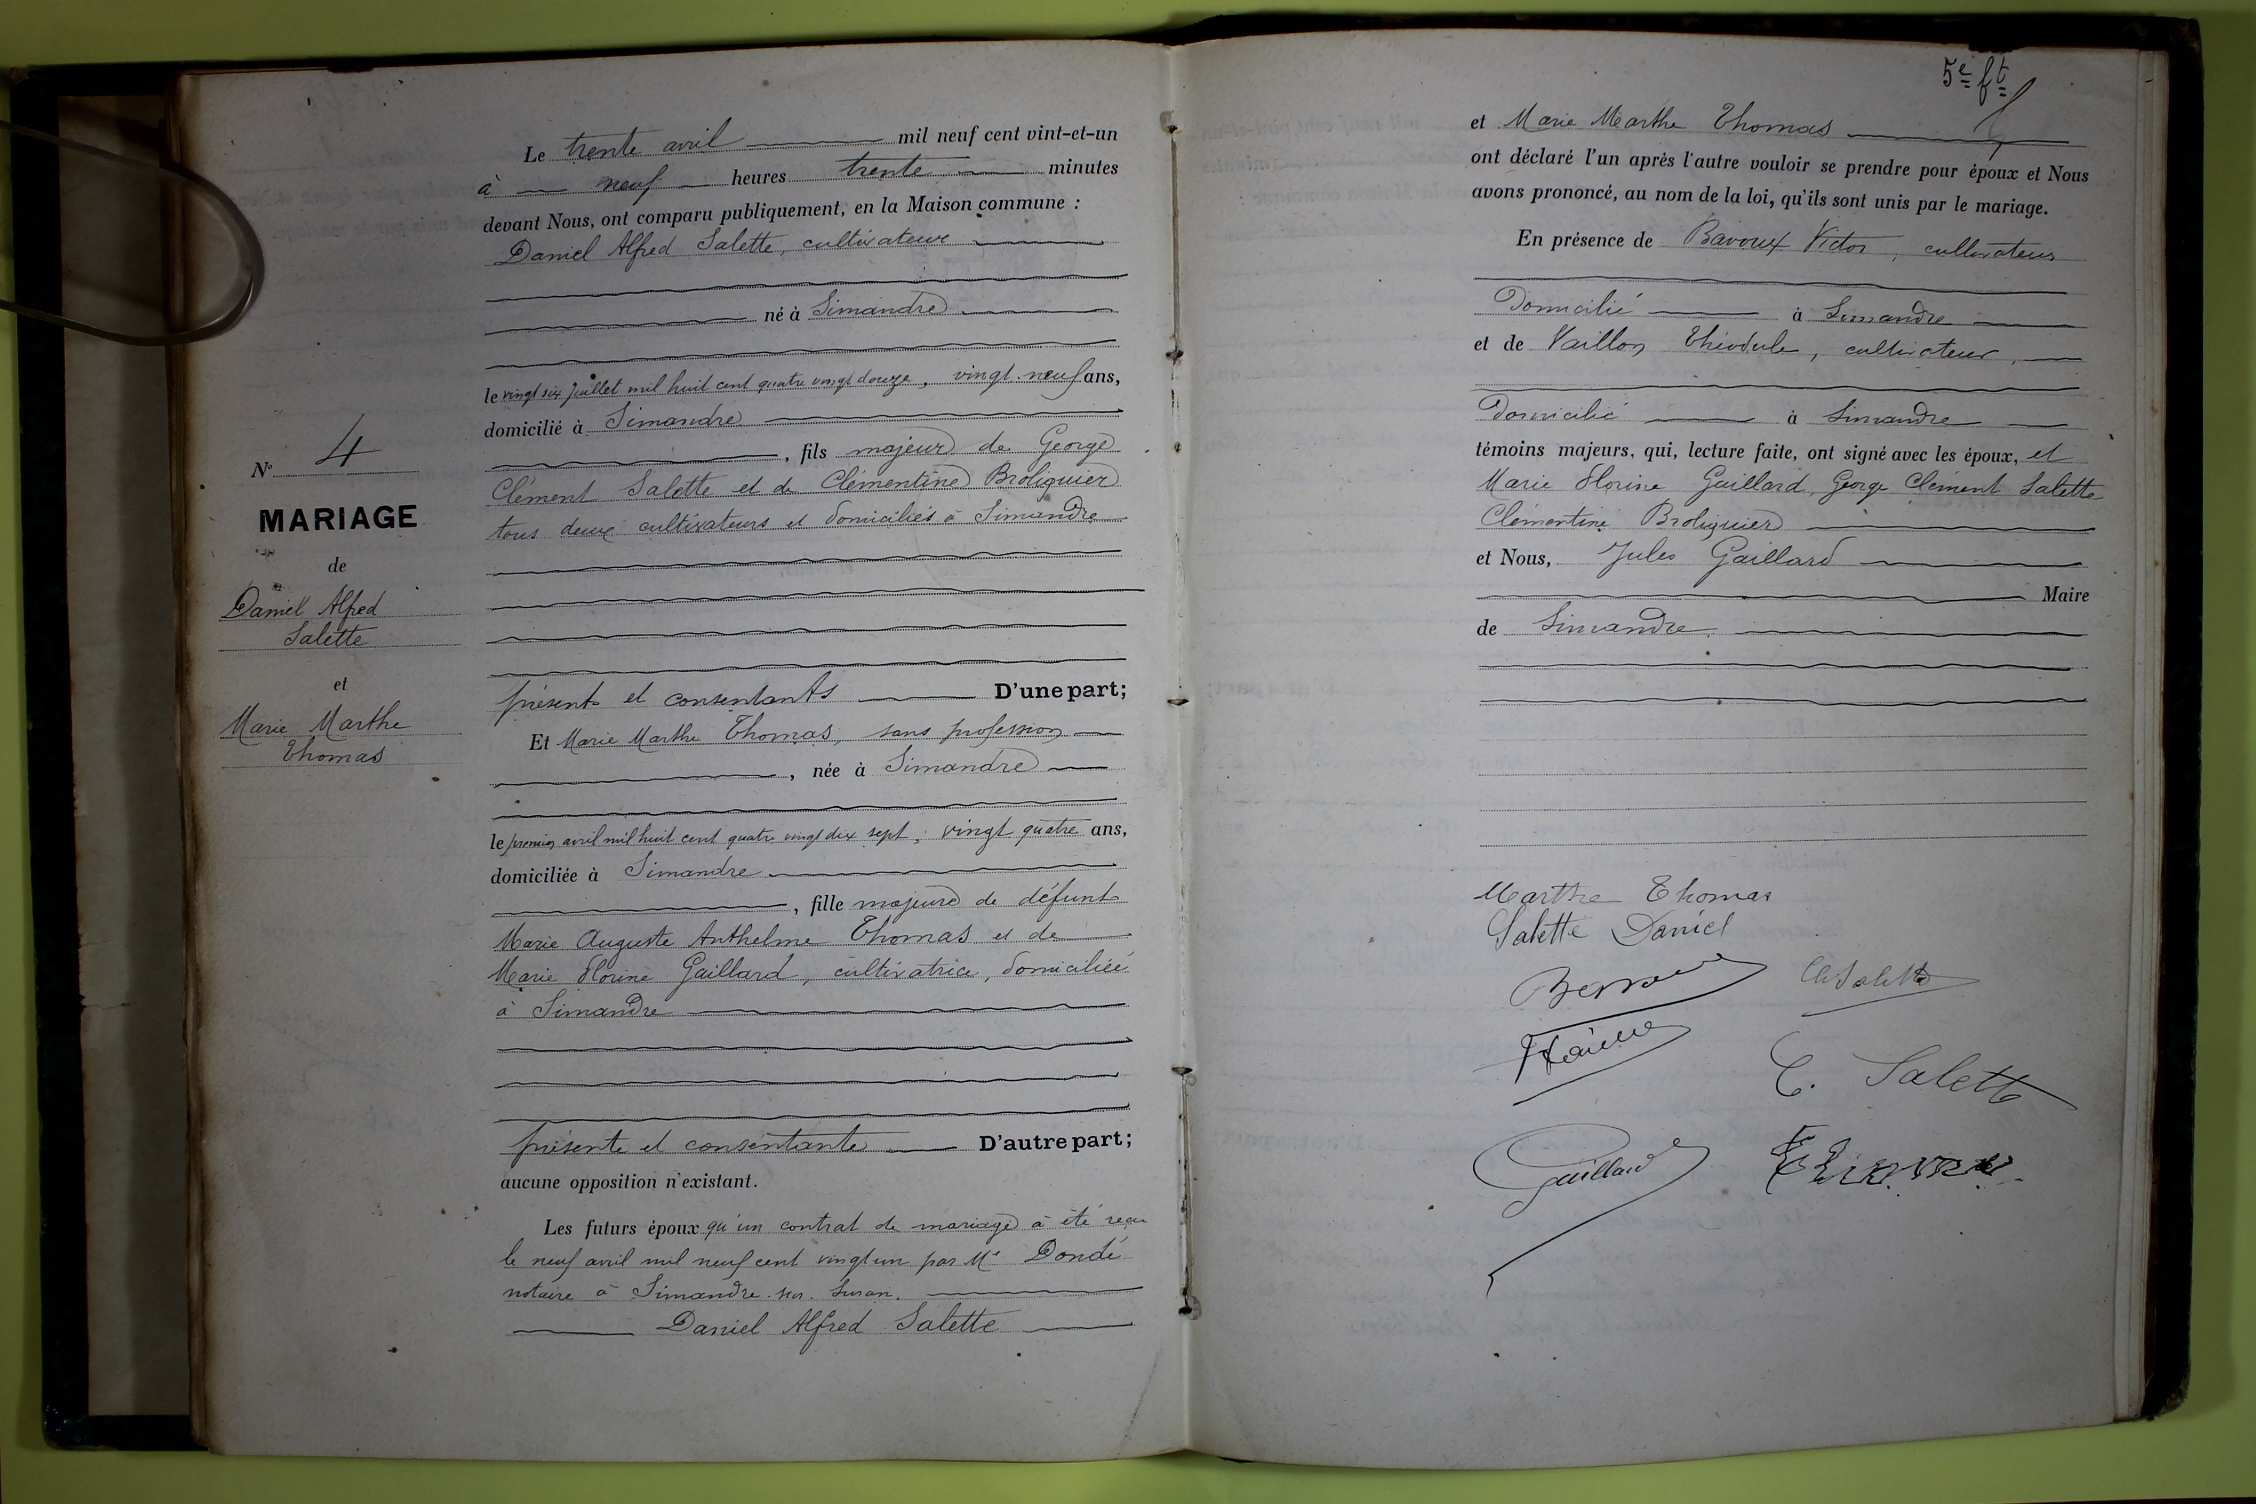 N° 4
MARIAGE
de
Daniel Alfred
Salette
et
Marie Marthe
Thomas
Le trente avril mil neuf cent vint-et-un
à neuf heures trente minutes
devant Nous, ont comparu publiquement, en la Maison commune :
Daniel Alfred Salette, cultivateur
né à Simandre
le vingt six juillet mil huit cent quatre vingt douze, vingt neuf ans,
domicilié à Simandre
, fils majeur de George
Clément Salette et de Clémentine Broliquier
tous deux cultivateurs et domiciliés à Simandre
présents et consentants D'une part;
Et Marie Marthe Thomas, sans profession
, née à Simandre
le premier avril mil huit cent quatre vingt dix sept, vingt quatre ans,
domiciliée à Simandre
, fille majeure de défunt
Marie Auguste Anthelme Thomas et de
Marie Florine Gaillard, cultivatrice, domiciliée
à Simandre
présente et consentante D'autre part;
aucune opposition n'existant.
Les futurs époux qu'un contrat de mariage à été reçu
le neuf avril mil neuf cent vingt un par Me Dondé
notaire à Simandre sur Suran.
Daniel Alfred Salette
5e ft
et Marie Marthe Thomas
ont déclaré l'un après l'autre vouloir se prendre pour époux et Nous
avons prononcé, au nom de la loi, qu'ils sont unis par le mariage.
En présence de Bavoux Victor, cultivateur
Domicilié à Simandre
et de Vaillon Théodule, cultivateur,
Domicilié à Simandre
témoins majeurs, qui, lecture faite, ont signé avec les époux, et
Marie Florine Gaillard, George Clément Salette
Clémentine Broliquier
et Nous, Jules Gaillard
Maire
de Simandre.
Marthe Thomas
Salette Daniel
Cl Salette
C. Salette
Gaillard